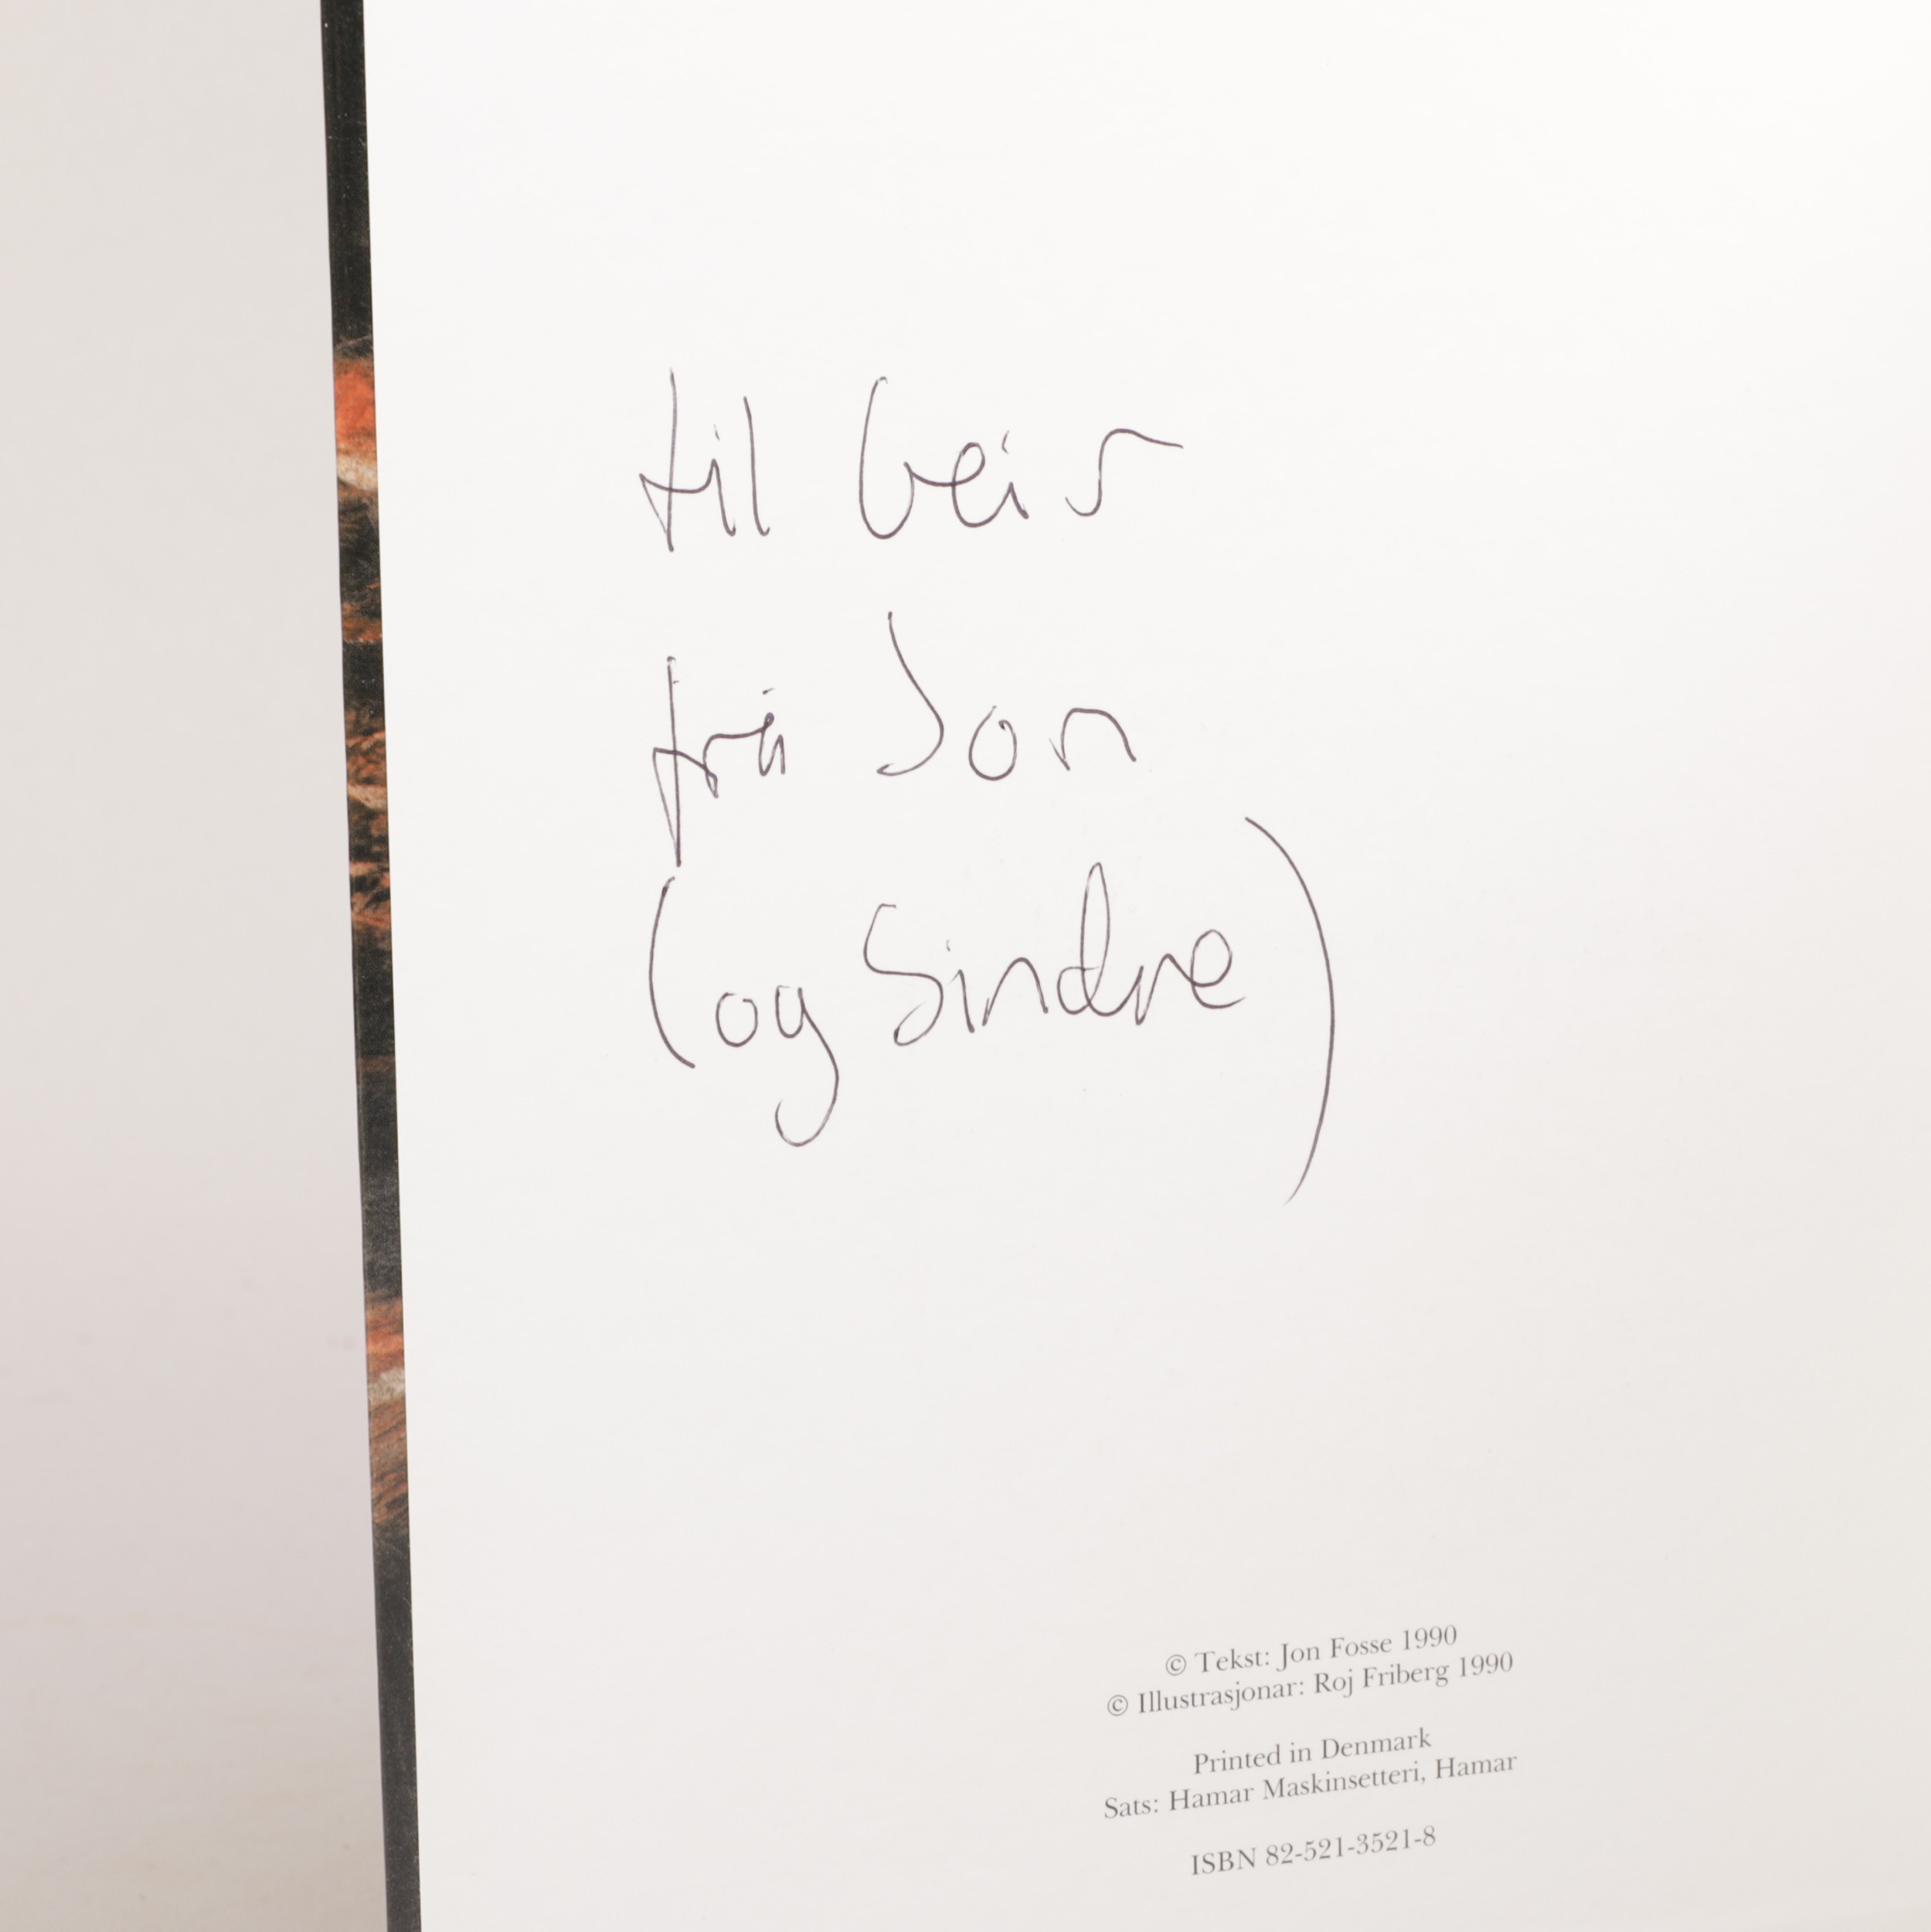 til Geir
frå Jon
(og Sindre)
© Tekst: Jon Fosse 1990
© Illustrasjonar: Roj Friberg 1990
Printed in Denmark
Sats: Hamar Maskinsetteri, Hamar
ISBN 82-521-3521-8